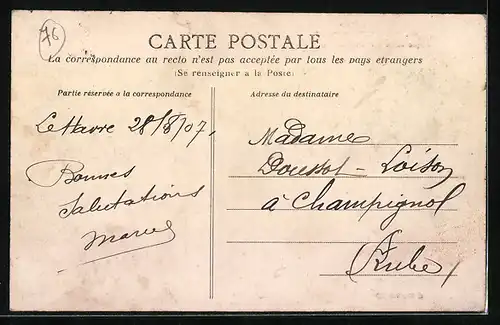 76
CARTE POSTALE
La correspondance au recto n'est pas acceptée par tous les pays etrangers
(Se renseigner a la Poste)
Partie réservée a la correspondance
Adresse du destinataire
Le Havre 28/8/07,
Bonnes
Salutations
Marcel
Madame
Doussot - Loison
à Champignol
(Aube)